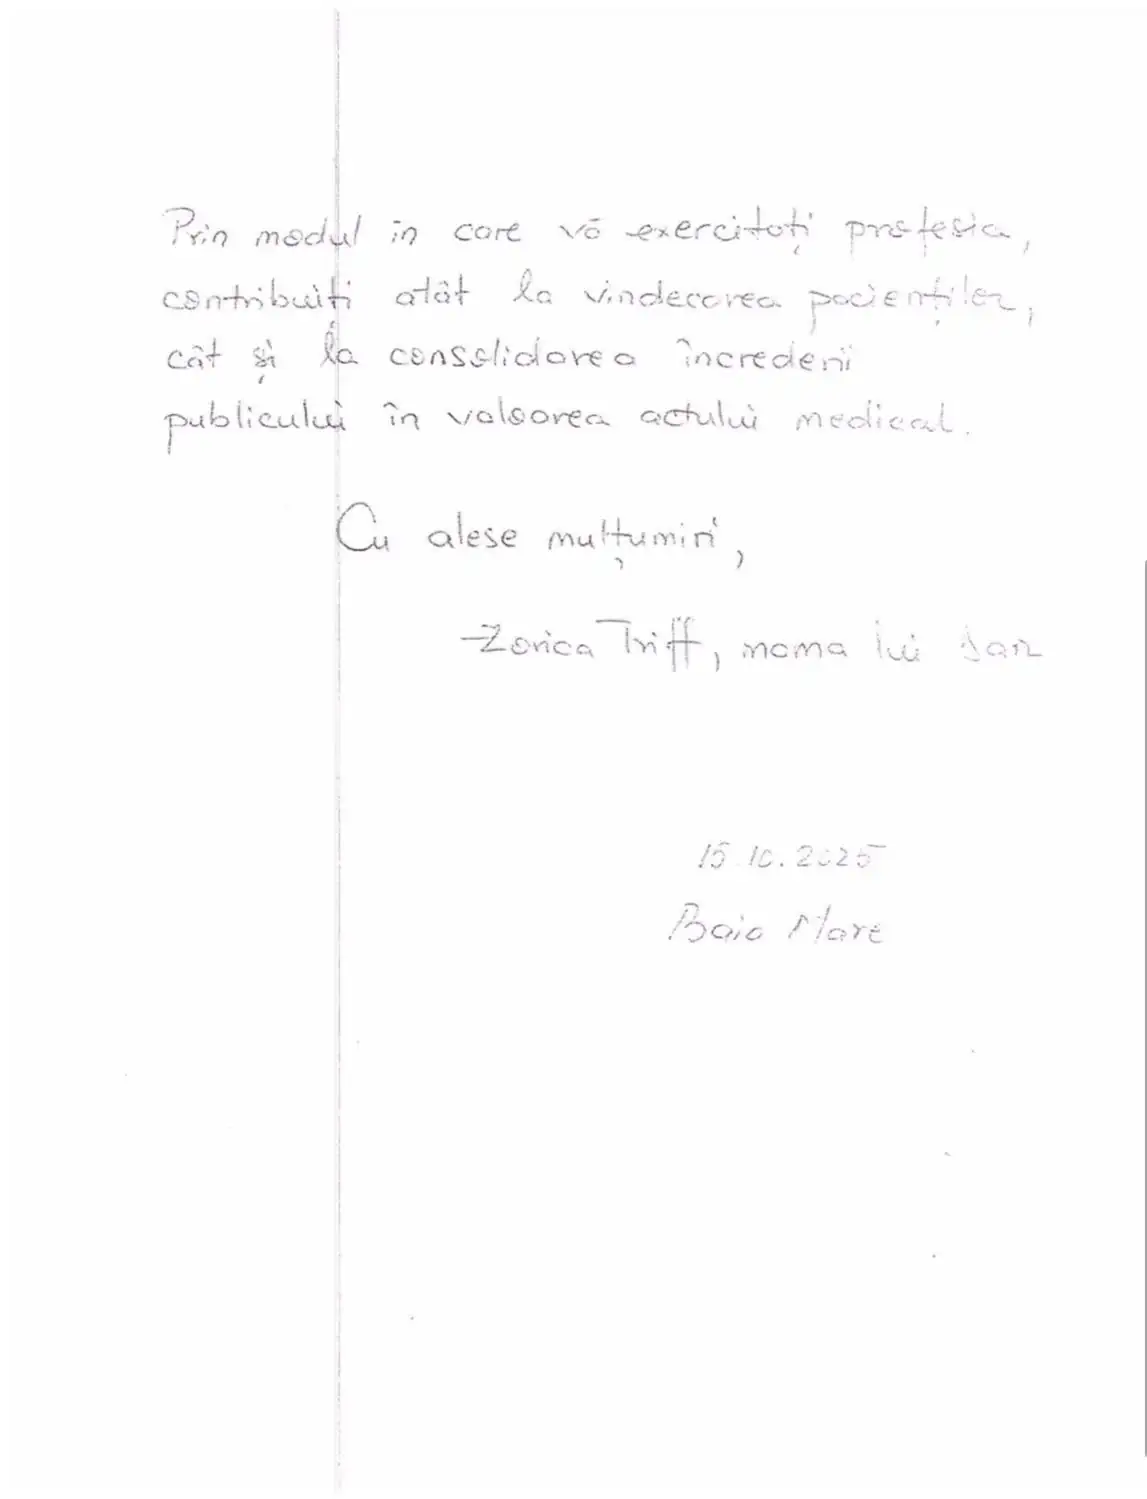 Prin modul în care vă exercitați profesia,
contribuiți atât la vindecarea pacienților,
cât și la consolidarea încrederii
publicului în valoarea actului medical.
Cu alese mulțumiri,
Zorica Triff, mama lui Dan
15.10.2025
Baia Mare